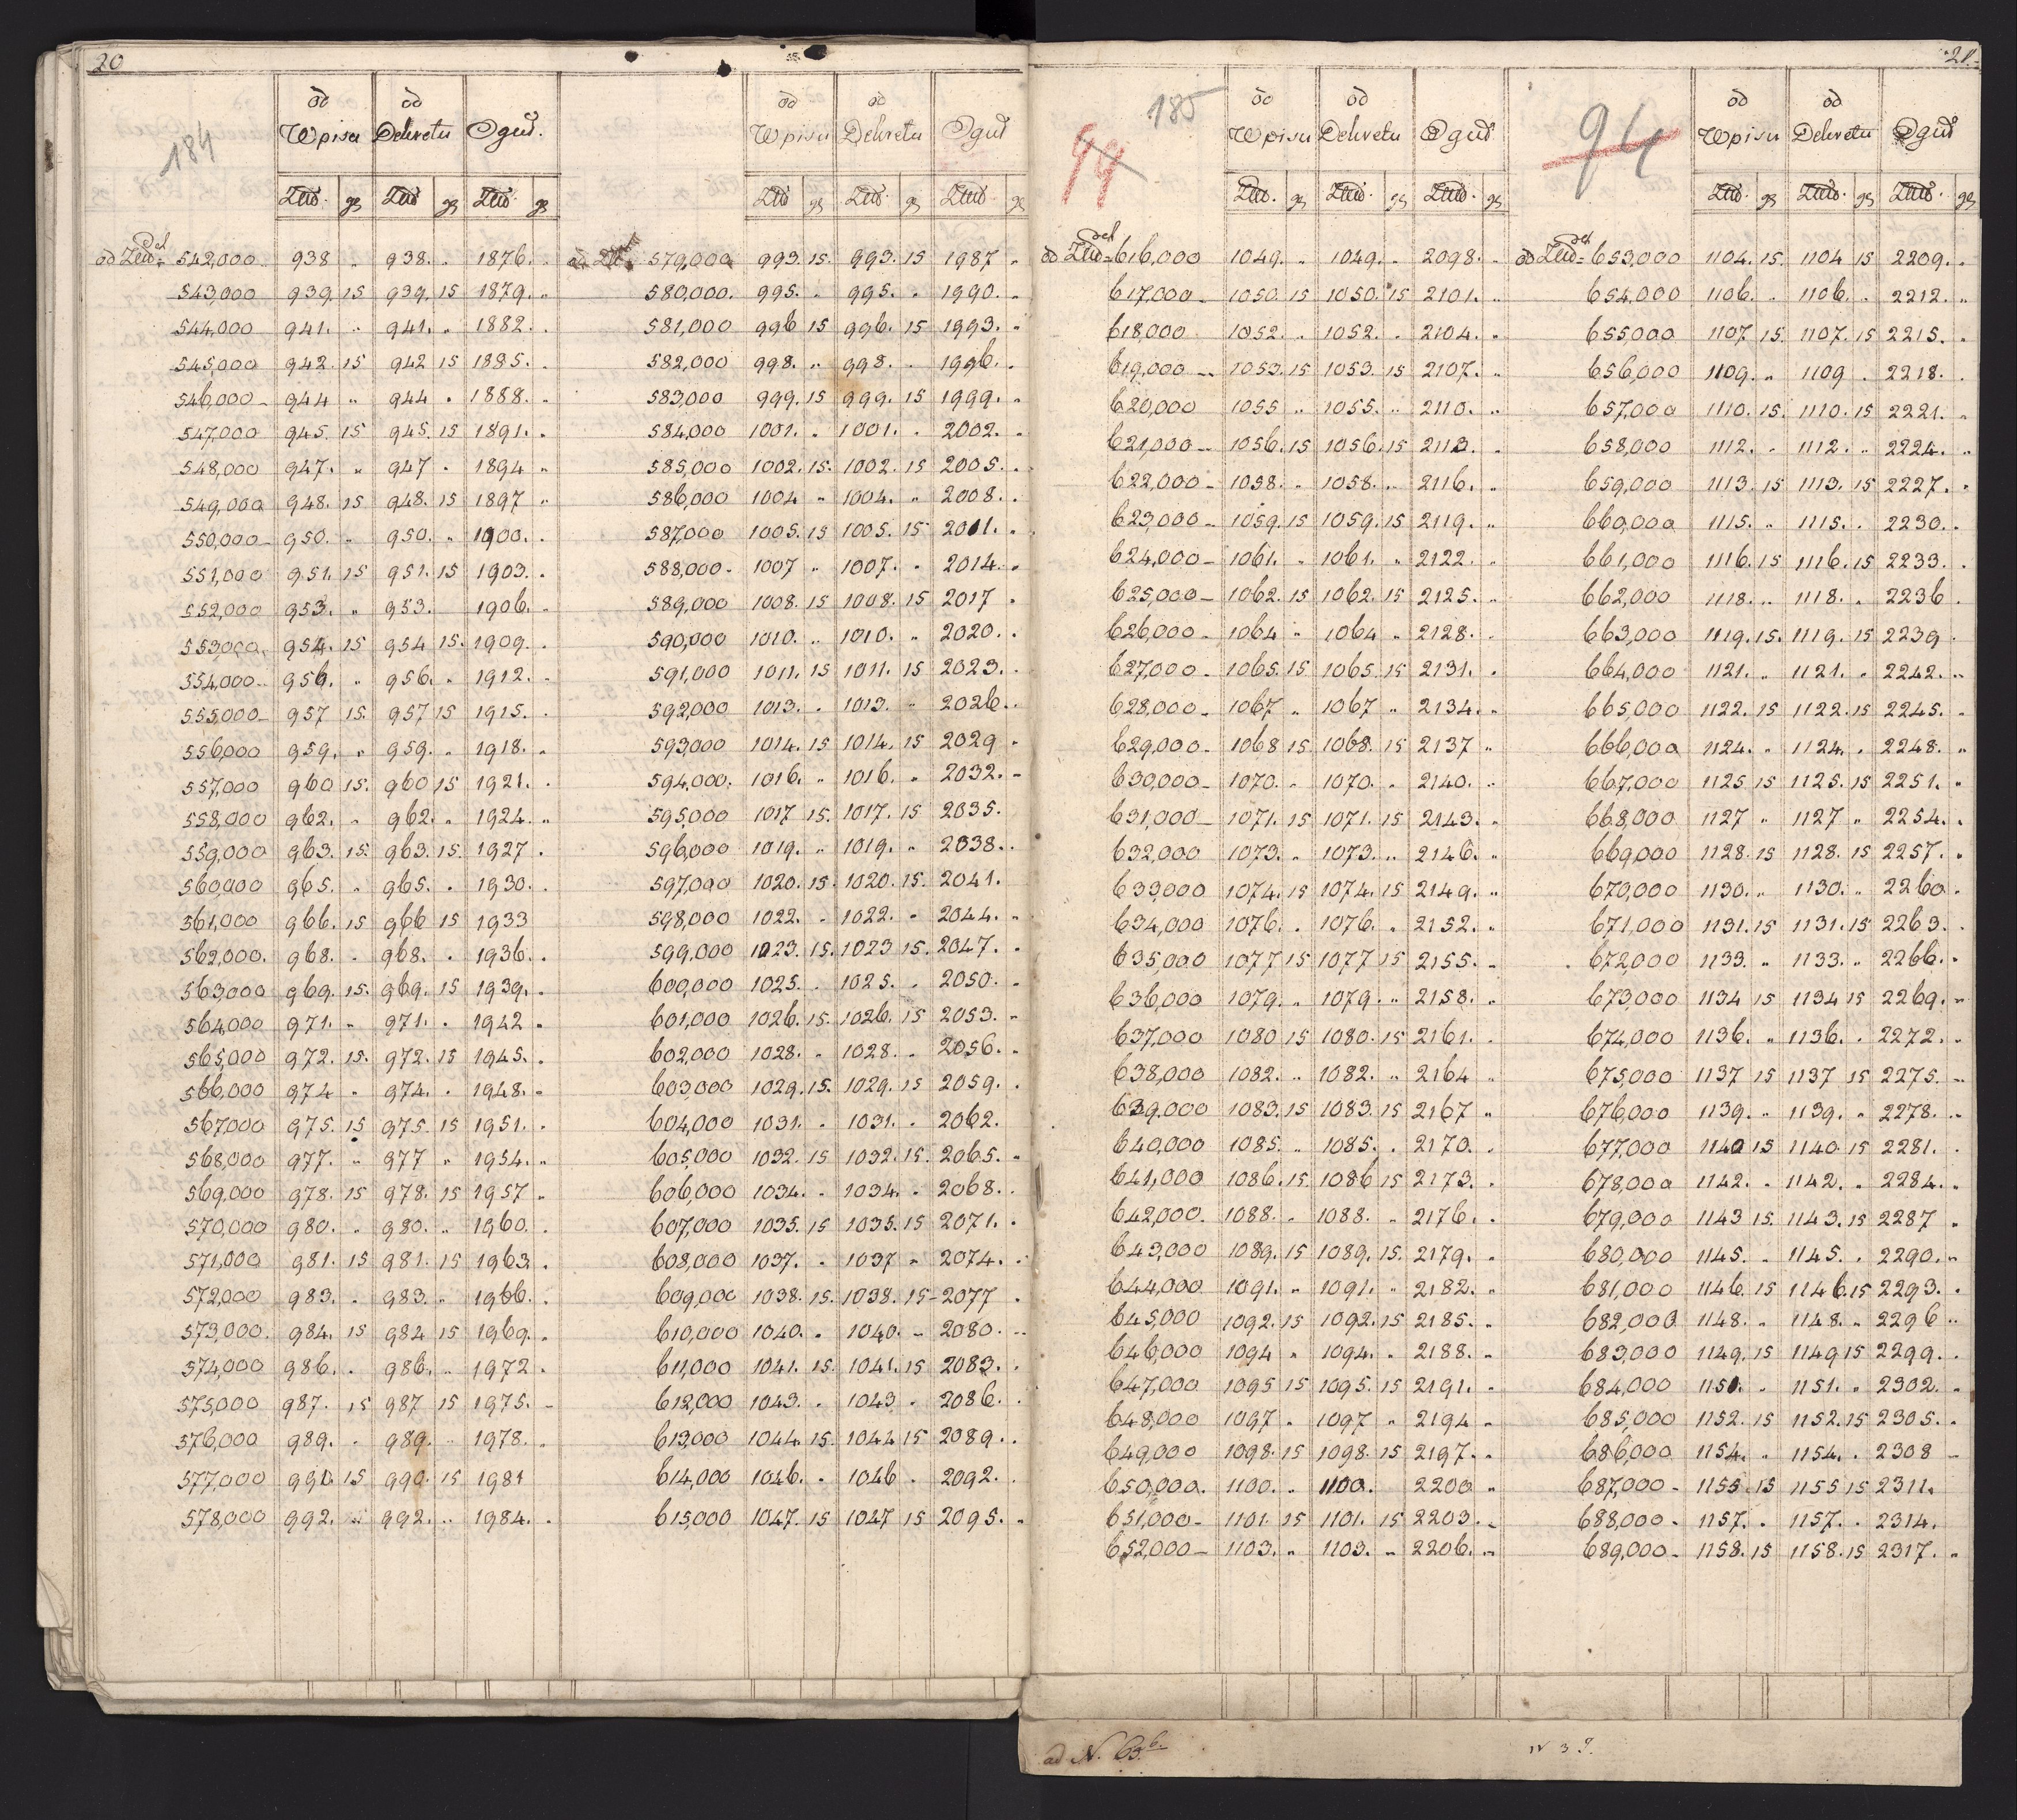 20
184
od Wpisu od Dekretu Oguł.
Złł. gr Złł gr Złł. gr
od Złł. 542,000 938 „ 938. „ 1876. „
543,000 939. 15 939. 15 1879. „
544,000 941. „ 941. „ 1882. „
545,000 942. 15 942 15 1885. „
546,000 944 „ 944 „ 1888. „
547,000 945. 15 945. 15 1891. „
548,000 947. „ 947 „ 1894 „
549,000 948. 15 948. 15 1897 „
550,000 950. „ 950. „ 1900. „
551,000 951. 15 951. 15 1903. „
552,000 953. „ 953. 1906. „
553,000 954. 15 954 15. 1909. „
554,000 956. „ 956. „ 1912. „
555,000 957 15. 957 15 1915. „
556,000 959. „ 959. „ 1918. „
557,000 960 15. 960 15 1921. „
558,000 962. „ 962. „ 1924. „
559,000 963. 15. 963. 15. 1927 „
560,000 965. „ 965. „ 1930. „
561,000 966. 15 966 15 1933
562,000. 968. „ 968. „ 1936. „
563,000 969. 15. 969. 15 1939. „
564,000 971. „ 971. „ 1942 „
565,000 972. 15. 972. 15 1945. „
566,000 974 „ 974. „ 1948. „
567,000 975. 15 975. 15 1951. „
568,000 977. „ 977 „ 1954. „
569,000 978. 15 978. 15 1957 „
570,000 980. „ 980. „ 1960. „
571,000 981. 15 981. 15 1963. „
572,000 983. „ 983. „ 1966. „
573,000. 984. 15 984 15 1969. „
574,000 986. „ 986. „ 1972 „
575,000 987. 15 987 15 1975. „
576,000 989. „ 989. „ 1978. „
577,000 990 15 990. 15 1981
578,000 992. „ 992. „ 1984. „
od Wpisu od Dekretu Oguł
Złł gr Złł. gr Złł. gr
579,000 993. 15. 993. 15 1987 „
580,000. 995. „ 995. „ 1990. „
581,000 996 15 996. 15 1993. „
582,000 998. „ 998. „ 1996. „
583,000 999. 15 999. 15 1999. „
584,000 1001. „ 1001. „ 2002. „
585,000 1002. 15. 1002. 15 2005. „
586,000 1004 „ 1004. „ 2008. „
587,000 1005. 15 1005. 15 2011. „
588,000 1007 „ 1007. „ 2014. „
589,000 1008. 15 1008. 15 2017 „
590,000 1010. „ 1010. „ 2020. „
591,000 1011. 15 1011. 15 2023. „
592,000 1013. „ 1013. „ 2026. „
593,000 1014. 15 1014. 15 2029 „
594,000. 1016. „ 1016. „ 2032. „
595,000 1017 15. 1017. 15 2035.
596,000 1019. „ 1019. „ 2038. „
597,000 1020. 15. 1020. 15. 2041.
598,000 1022. „ 1022. „ 2044. „
599,000 1023. 15. 1023 15. 2047. „
600,000 1025. „ 1025. „ 2050. „
601,000 1026. 15. 1026. 15 2053. „
602,000 1028. „ 1028. „ 2056. „
603,000 1029. 15. 1029. 15 2059. „
604,000 1031. „ 1031. „ 2062.
605,000 1032. 15 1032. 15. 2065. „
606,000 1034. „ 1034. „ 2068. „
607,000 1035. 15 1035. 15 2071. „
608,000 1037. „ 1037 „ 2074. „
609,000 1038. 15. 1038. 15 2077 „
610,000 1040. „ 1040. „ 2080. „
611,000 1041. 15. 1041. 15 2083. „
612,000 1043. „ 1043 „ 2086. „
613,000 1044. 15. 1044 15 2089. „
614,000 1046. „ 1046 „ 2092. „
615,000 1047. 15 1047 15 2095. „
21.
99 185
od Wpisu od Dekretu Oguł
Złł. gr Złł. gr Złł. gr
od Złł. 616,000 1049. „ 1049. „ 2098. „
617,000 1050. 15 1050. 15 2101. „
618,000 1052. „ 1052. „ 2104. „
619,000 1053. 15 1053. 15 2107. „
620,000 1055 „ 1055. „ 2110. „
621,000 1056. 15 1056. 15 2113. „
622,000 1058. „ 1058. „ 2116. „
623,000 1059. 15 1059. 15 2119. „
624,000 1061. „ 1061. „ 2122. „
625,000 1062. 15 1062. 15 2125. „
626,000 1064 „ 1064 „ 2128. „
627,000 1065. 15 1065. 15 2131. „
628,000 1067 „ 1067 „ 2134. „
629,000 1068 15 1068. 15 2137 „
630,000 1070. „ 1070. „ 2140. „
631,000 1071. 15 1071. 15 2143. „
632,000 1073. „ 1073. „ 2146. „
633,000 1074. 15 1074. 15 2149. „
634,000 1076. „ 1076. „ 2152. „
635,000 1077 15 1077 15 2155. „
636,000 1079. „ 1079. „ 2158. „
637,000 1080 15 1080. 15 2161. „
638,000 1082. „ 1082. „ 2164 „
639,000 1083. 15 1083. 15 2167 „
640,000 1085. „ 1085. „ 2170. „
641,000 1086. 15. 1086 15 2173. „
642,000. 1088. „ 1088. „ 2176. „
643,000 1089. 15 1089. 15. 2179. „
644,000 1091. „ 1091. „ 2182. „
645,000 1092. 15 1092. 15 2185. „
646,000 1094 „ 1094. „ 2188. „
647,000 1095 15 1095. 15 2191. „
648,000 1097 „ 1097 „ 2194 „
649,000 1098. 15 1098. 15 2197. „
650,000. 1100. „ 1100. 2200 „
651,000 1101. 15 1101. 15 2203. „
652,000 1103. „ 1103. „ 2206. „
94
od Wpisu od Dekretu Oguł
Złł. gr Złł. gr Złł. gr
od Złł. 653,000 1104. 15. 1104 15 2209. „
654,000 1106. „ 1106. „ 2212. „
655,000 1107 15. 1107. 15 2215. „
656,000 1109. „ 1109 „ 2218. „
657,000 1110. 15. 1110. 15 2221. „
658,000 1112. „ 1112. „ 2224. „
659,000 1113. 15 1113. 15 2227. „
660,000 1115. „ 1115. „ 2230. „
661,000 1116. 15 1116. 15 2233. „
662,000 1118. „ 1118. „ 2236 „
663,000 1119. 15. 1119. 15 2239 „
664,000 1121. „ 1121. „ 2242. „
665,000 1122. 15 1122. 15 2245. „
666,000 1124. „ 1124. „ 2248. „
667,000 1125 15 1125. 15 2251. „
668,000 1127 „ 1127 „ 2254. „
669,000 1128. 15 1128. 15 2257. „
670,000 1130. „ 1130. „ 2260. „
671,000 1131. 15 1131. 15 2263. „
672,000 1133. „ 1133. „ 2266. „
673,000 1134 15 1134 15 2269. „
674,000 1136. „ 1136. „ 2272. „
675,000 1137 15 1137 15 2275. „
676,000 1139. „ 1139. „ 2278. „
677,000 1140 15 1140. 15 2281. „
678,000 1142. „ 1142. „ 2284. „
679,000 1143 15. 1143. 15 2287 „
680,000 1145. „ 1145. „ 2290. „
681,000 1146. 15 1146. 15 2293. „
682,000 1148. „ 1148. „ 2296 „
683,000 1149. 15 1149 15 2299. „
684,000 1151. „ 1151. „ 2302. „
685,000 1152. 15 1152. 15 2305. „
686,000 1154. „ 1154. „ 2308 „
687,000 1155 15 1155 15 2311.
688,000 1157. „ 1157. „ 2314.
689,000 1158. 15 1158. 15 2317. „
ad N. 63.b.